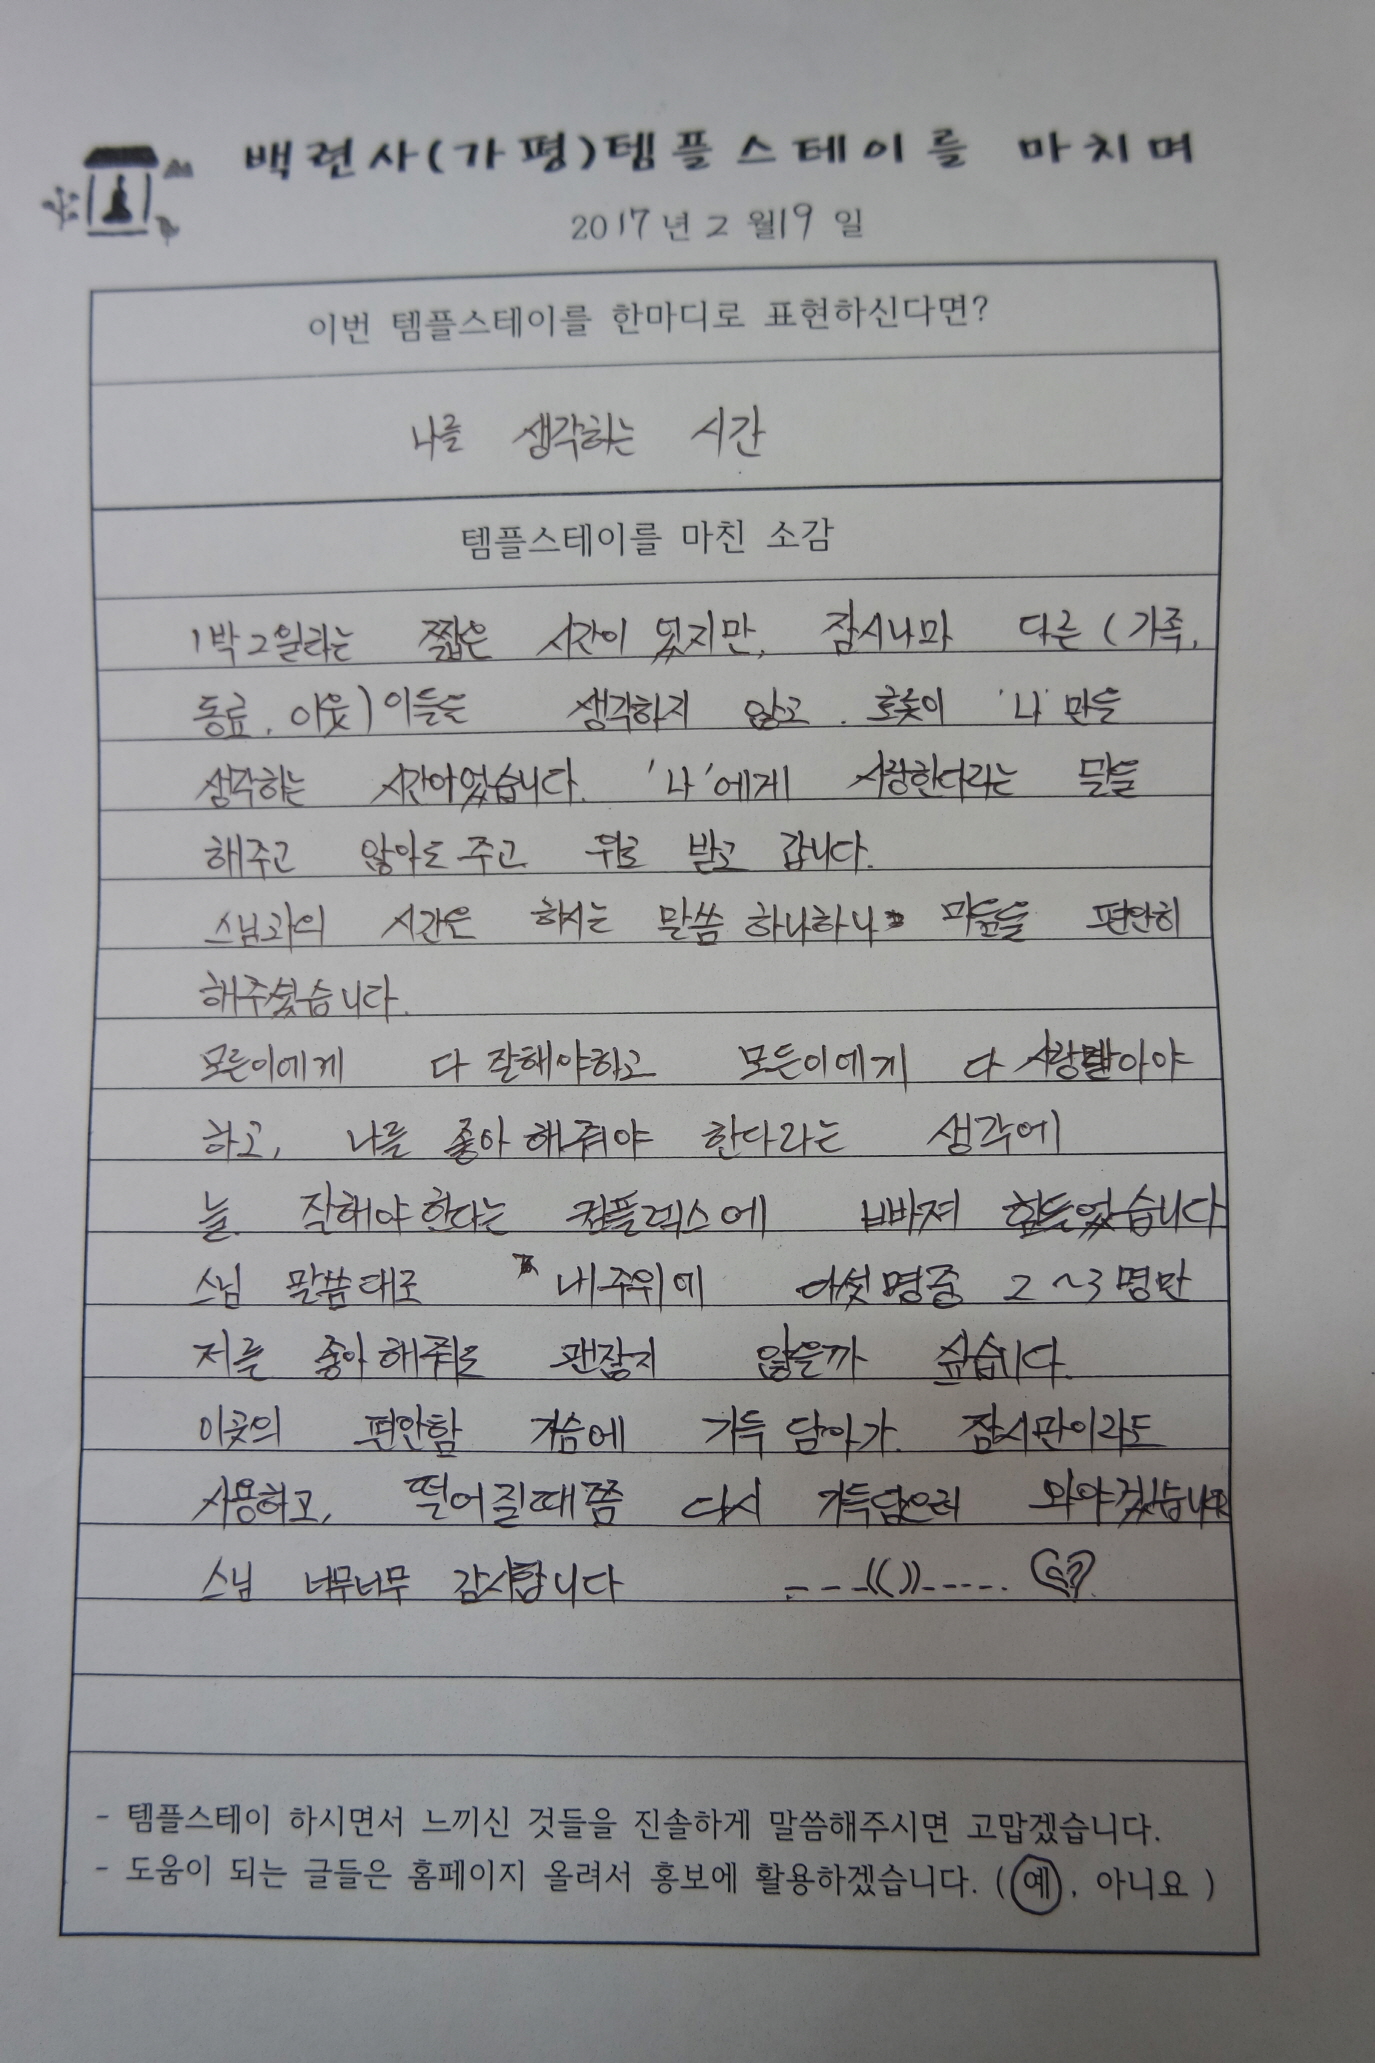 백련사(가평)템플스테이를 마치며
2017년 2월 19일
이번 템플스테이를 한마디로 표현하신다면?
나를 생각하는 시간
템플스테이를 마친 소감
1박2일라는 짧은 시간이 었지만, 잠시나마 다른 (가족,
동료, 이웃)이들을 생각하지 않고. 오롯이 '나'만을
생각하는 시간이었습니다. '나'에게 사랑한다라는 말을
해주고 않아도 주고 위로 받고 갑니다.
스님과의 시간은 하시는 말씀 하나하나 마음을 편안히
해주셨습니다.
모든이에게 다 잘해야하고 모든이에게 다 사랑받아야
하고, 나를 좋아해줘야 한다라는 생각에
늘 잘해야한다는 컴플렉스에 빠져 힘들었습니다
스님 말씀대로 내주위에 다섯명중 2~3명만
저를 좋아해줘도 괜찮지 않을까 싶습니다.
이곳의 편안함 가슴에 가득 담아가 잠시관이라도
사용하고, 떨어질때쯤 다시 가득담으러 와야겠습니다
스님 너무너무 감사합니다 ---(())----.
- 템플스테이 하시면서 느끼신 것들을 진솔하게 말씀해주시면 고맙겠습니다.
- 도움이 되는 글들은 홈페이지 올려서 홍보에 활용하겠습니다. (예, 아니요)